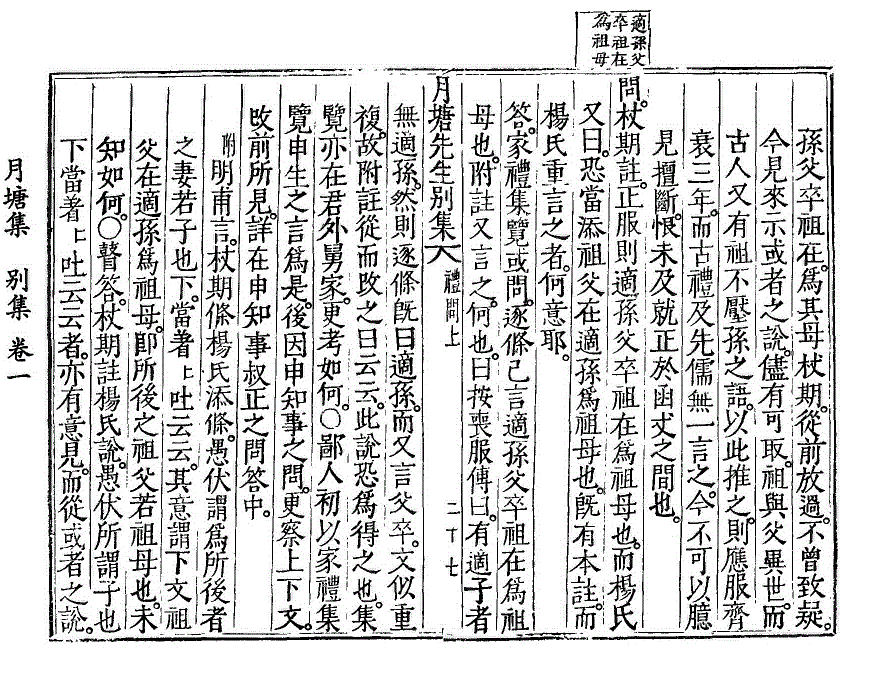 適孫父
卒祖在
爲祖母
孫父卒祖在。爲其母杖期。從前放過。不曾致疑。
今見來示或者之說。儘有可取。祖與父異世。而
古人又有祖不壓孫之語。以此推之。則應服齊
衰三年。而古禮及先儒無一言之。今不可以臆
見擅斷。恨未及就正於函丈之間也。
問。杖期註。正服則適孫父卒祖在爲祖母也。而楊氏
又曰。恐當添祖父在適孫爲祖母也。旣有本註。而
楊氏重言之者。何意耶。
答。家禮集覽或問。逐條已言適孫父卒祖在爲祖
母也。附註又言之。何也。曰按喪服傳曰。有適子者
月塘先生別集 禮問上 二十七
無適孫。然則逐條旣曰適孫。而又言父卒。文似重
複。故附註從而改之曰云云。此說恐爲得之也。集
覽亦在君外舅家。更考如何。○鄙人初以家禮集
覽申生之言爲是。後因申知事之問。更察上下文。
改前所見。詳在申知事叔正之問答中。
附明甫言。杖期條楊氏添條。愚伏謂爲所後者
之妻若子也下。當著上吐云云。其意謂下文祖
父在適孫爲祖母。卽所後之祖父若祖母也。未
知如何。○瞽答。杖期註楊氏說。愚伏所謂子也
下當着上吐云云者。亦有意見。而從或者之說。
月塘集 別集 卷一